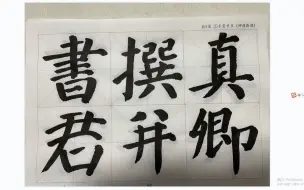 真卿
撰并
書君